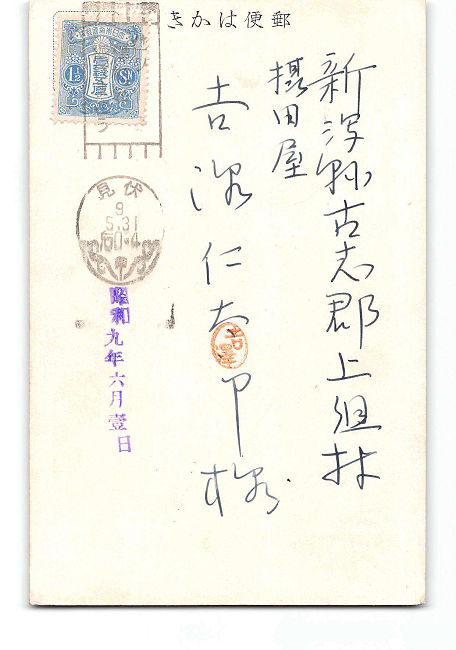 郵便はかき
新潟縣古志郡上組村
摂田屋
吉澤仁太郎様
吉澤
1½ Sn
伏見
9
5.31
后0-4
昭和九年六月壹日